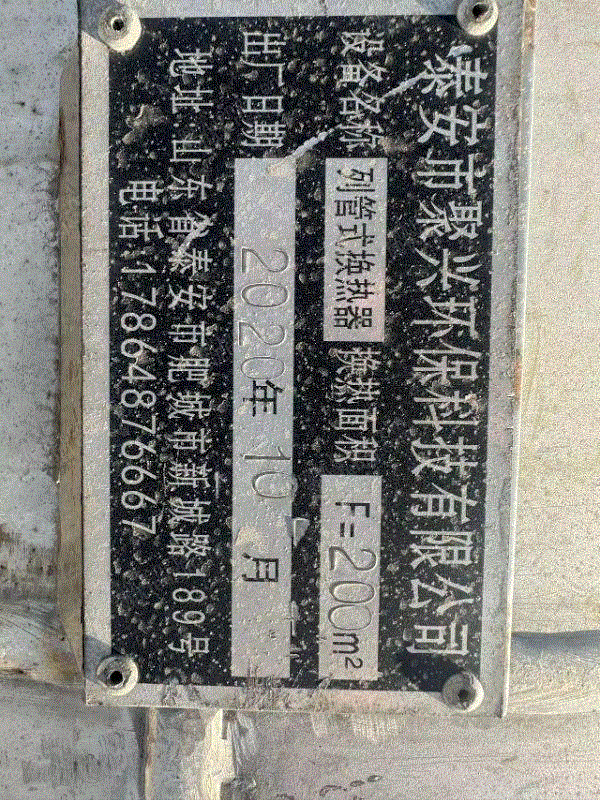 泰安市聚兴环保科技有限公司
设备名称 列管式换热器 换热面积 F=200m²
出厂日期 2020年10月
地址:山东省泰安市肥城市新城路189号
电话:17864876667